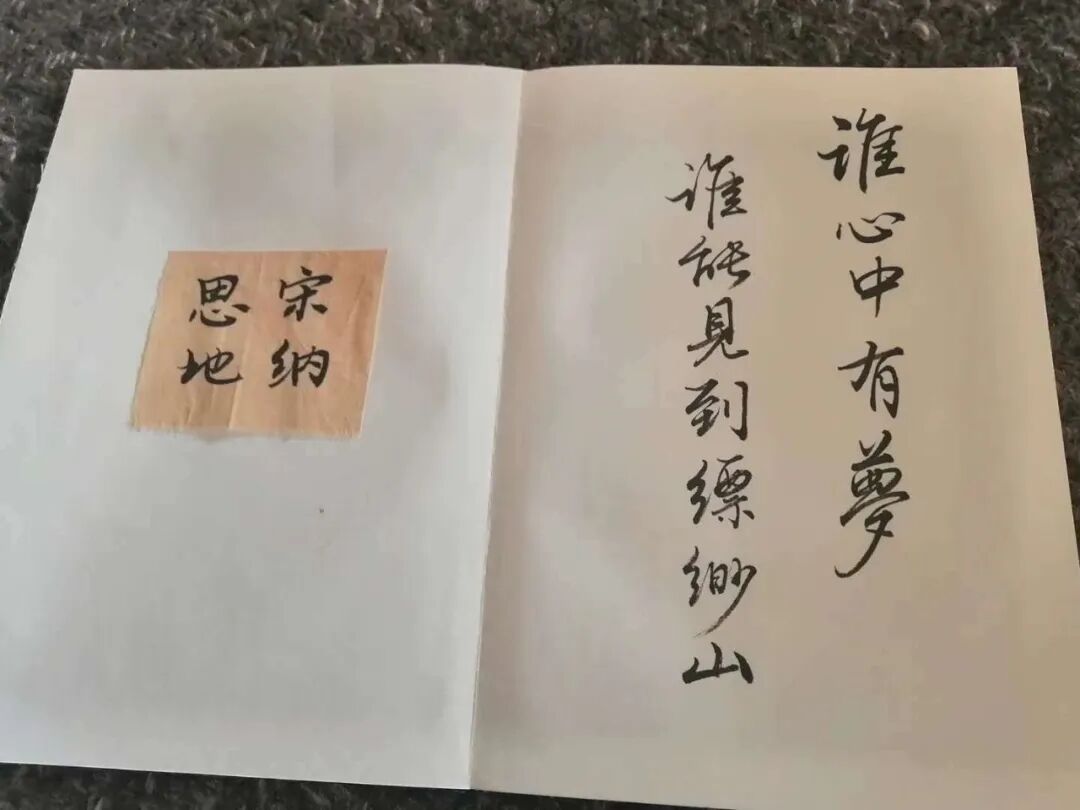 誰心中有夢
誰能見到縹緲山
宋纳
思地